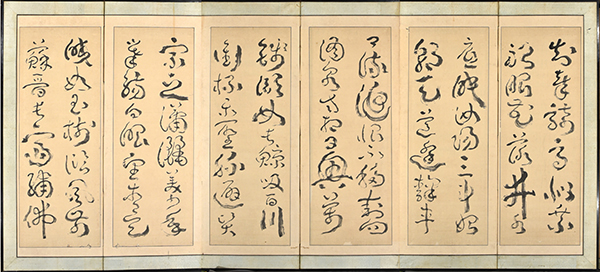 知章騎馬似乘
船眼花落井水
底眠汝陽三斗始
朝天道逢麴車
口流涎恨不移封向
酒泉左相日興萬
錢飲如長鯨吸百川
銜杯樂聖稱避賢
宗之瀟灑美少年
舉觴白眼望青天
皎如玉樹臨風前
蘇晉長齋繡佛